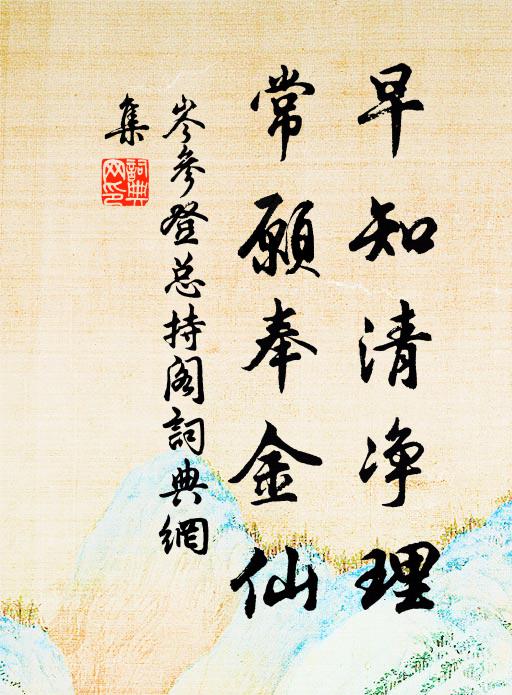 早知清净理
常願奉金仙
岑參登总持阁詞典網
集
詞典网印